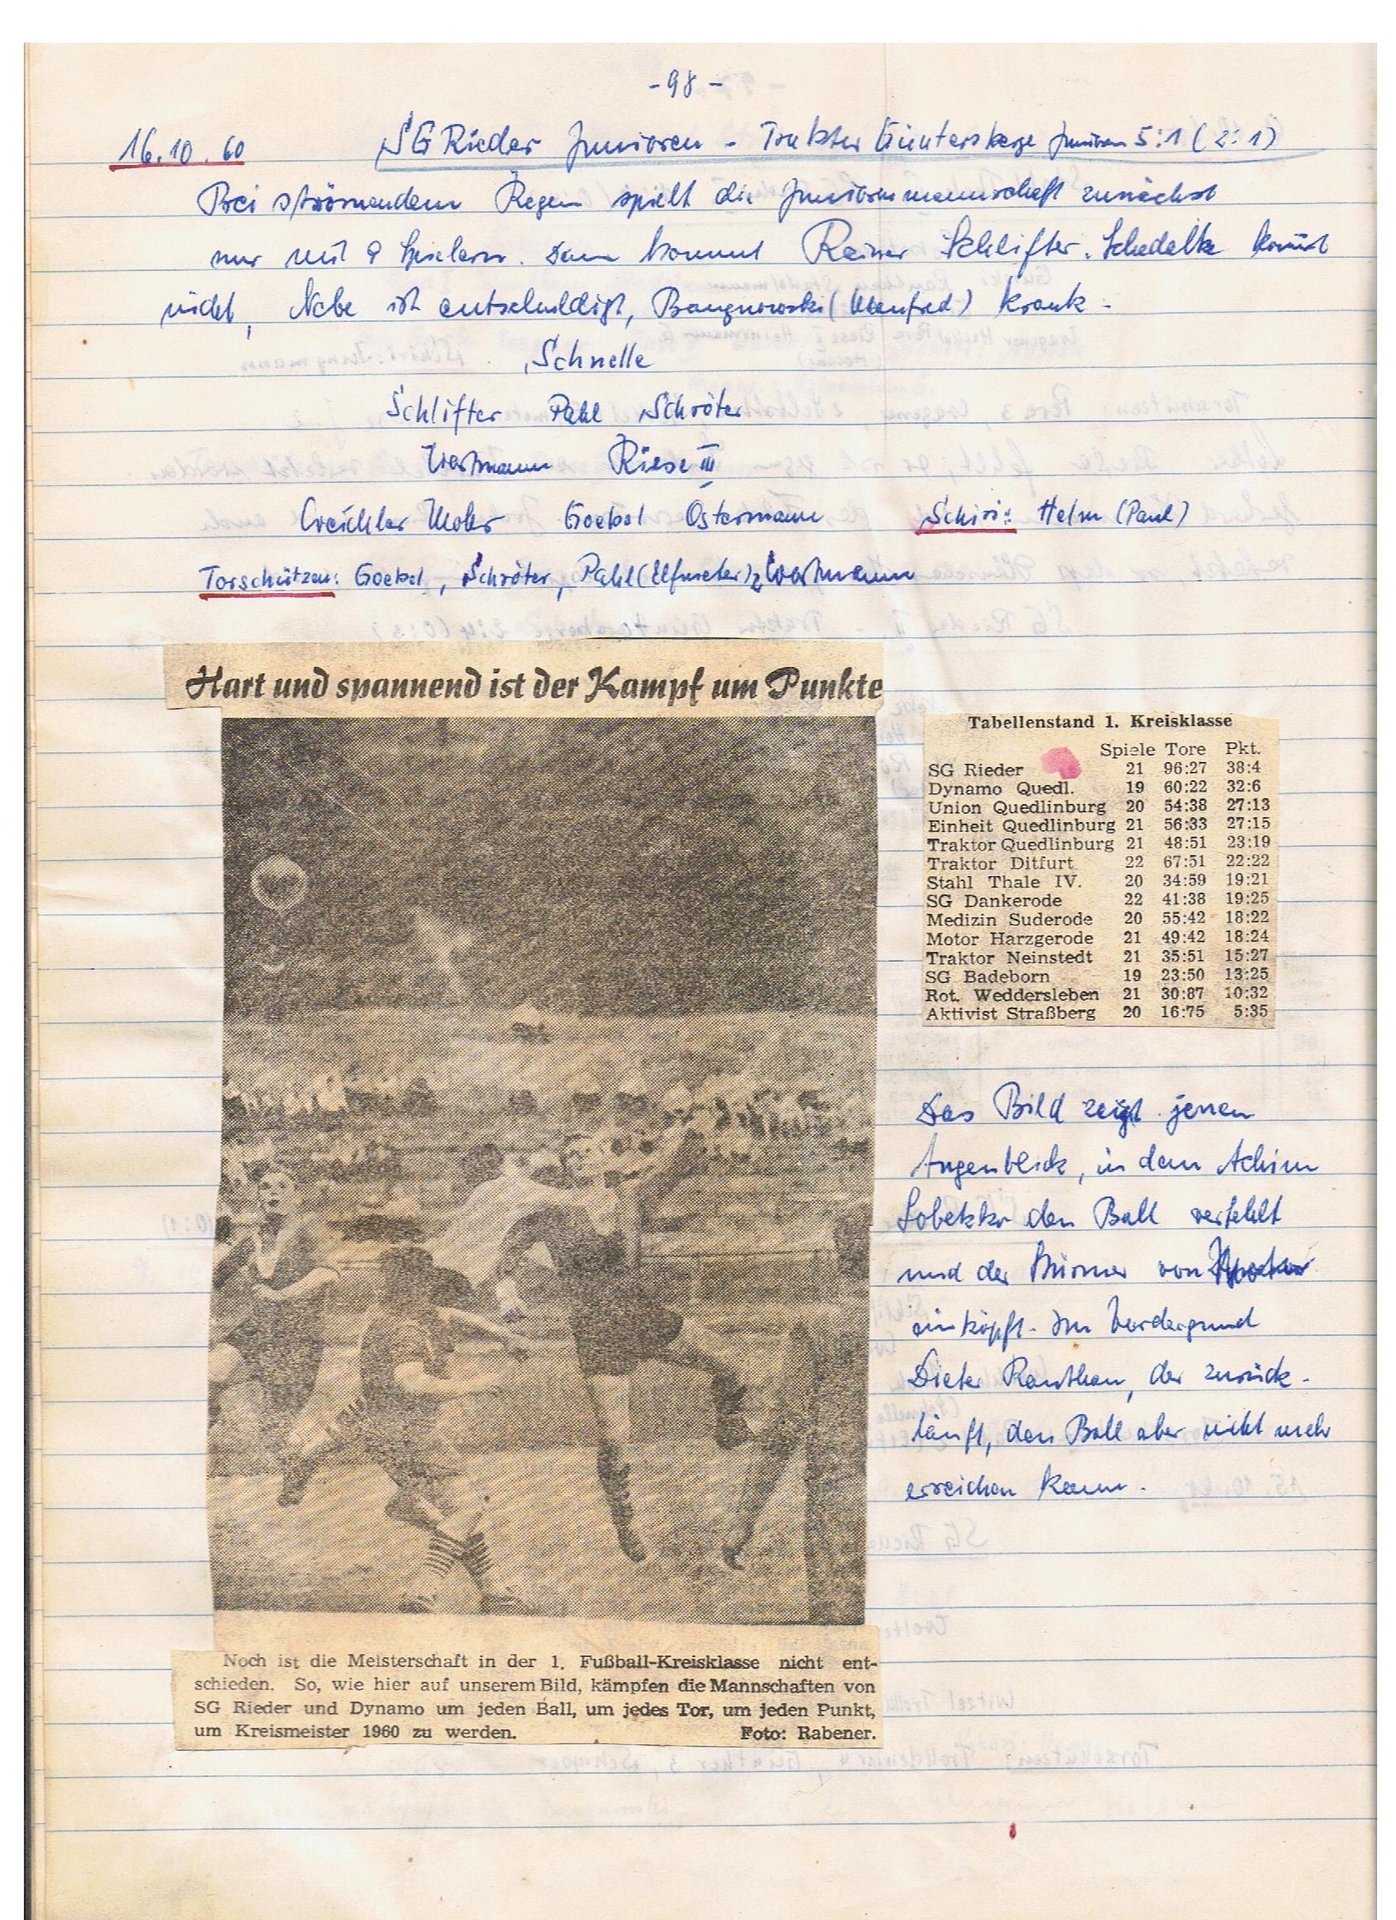 - 98 -
16.10.60 SG Rieder Junioren - Traktor Güntersberge Junioren 5:1 (2:1)
Bei strömendem Regen spielt die Juniorenmannschaft zunächst
nur mit 9 Spielern. Dann kommt Rainer Schlifter. Schedelke kommt
nicht, Nebe ist entschuldigt, (Manfred) krank.
Schnelle
Schlifter Pahl Schröter
Wortmann Riese III
Mohr Goebel Ostermann Schiri: Helm (Paul)
Torschützen: Goebel, Schröter, Pahl (Elfmeter), 2 Wortmann
Hart und spannend ist der Kampf um Punkte
Tabellenstand 1. Kreisklasse
Spiele Tore Pkt.
SG Rieder 21 96:27 38:4
Dynamo Quedl. 19 60:22 32:6
Union Quedlinburg 20 54:38 27:13
Einheit Quedlinburg 21 56:33 27:15
Traktor Quedlinburg 21 48:51 23:19
Traktor Ditfurt 22 67:51 22:22
Stahl Thale IV. 20 34:59 19:21
SG Dankerode 22 41:38 19:25
Medizin Suderode 20 55:42 18:22
Motor Harzgerode 21 49:42 18:24
Traktor Neinstedt 21 35:51 15:27
SG Badeborn 19 23:50 13:25
Rot. Weddersleben 21 30:87 10:32
Aktivist Straßberg 20 16:75 5:35
Das Bild zeigt jenen
Augenblick, in dem Achim
den Ball verfehlt
und der Stürmer von
einköpft. Im Vordergrund
Dieter Ranthan, der zurück-
läuft, den Ball aber nicht mehr
erreichen kann.
Noch ist die Meisterschaft in der 1. Fußball-Kreisklasse nicht ent-
schieden. So, wie hier auf unserem Bild, kämpfen die Mannschaften von
SG Rieder und Dynamo um jeden Ball, um jedes Tor, um jeden Punkt,
um Kreismeister 1960 zu werden. Foto: Rabener.